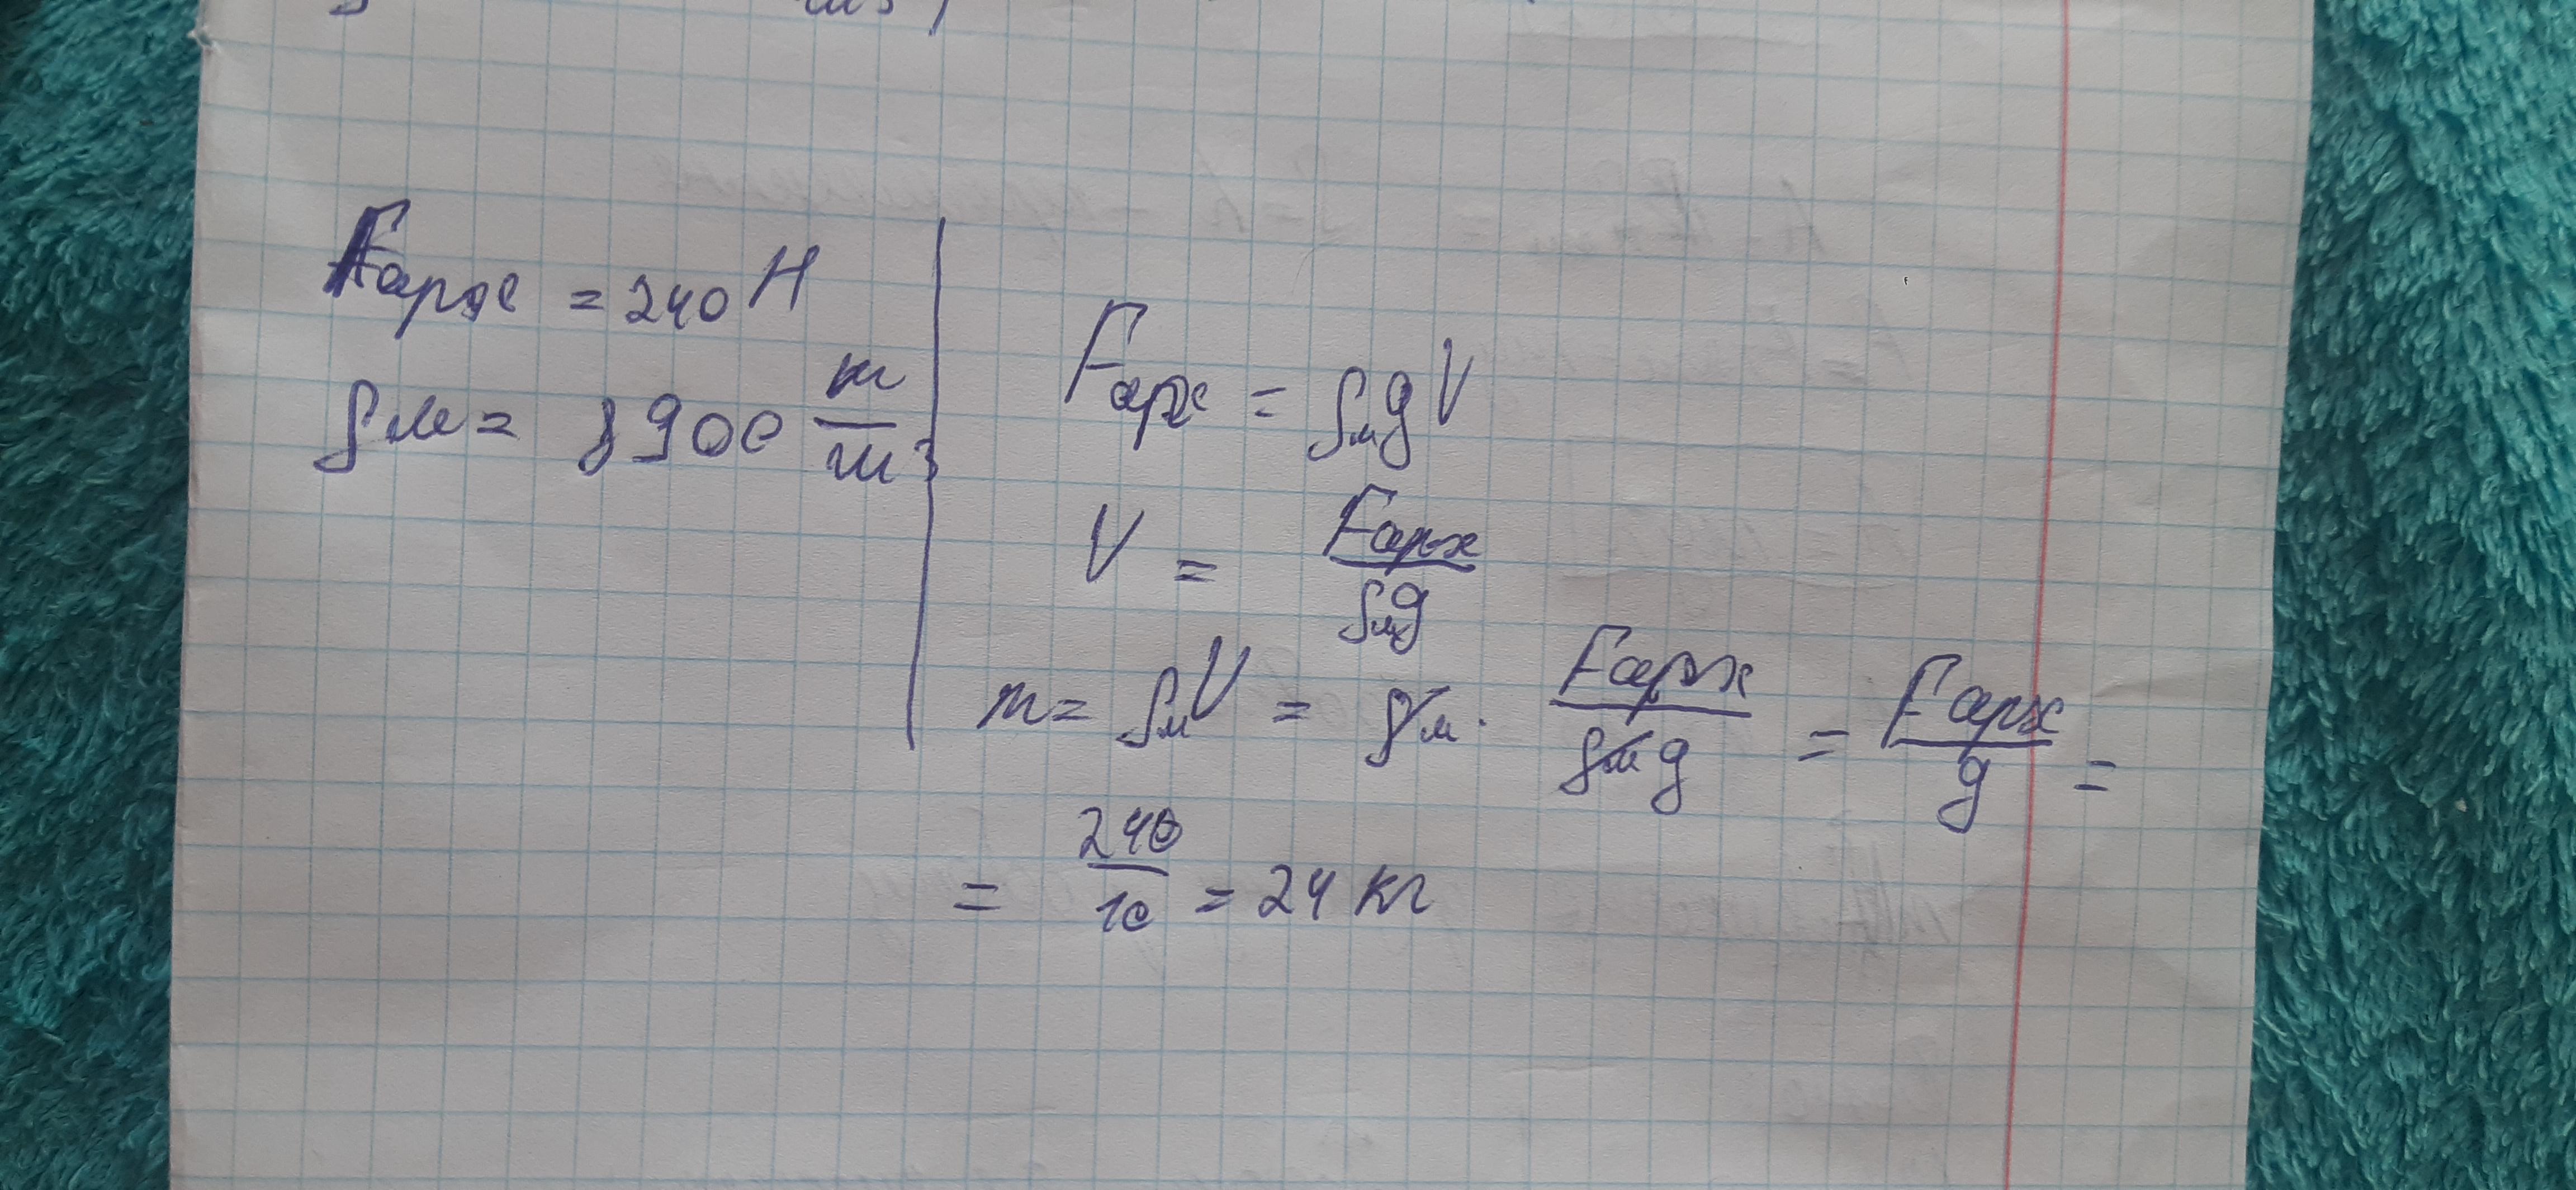 Fарх = 240 Н
ρм = 8900 кг/м³
Fарх = ρмgV
V = Fарх/ρмg
m = ρмV = ρм · Fарх/ρмg = Fарх/g =
= 240/10 = 24 кг